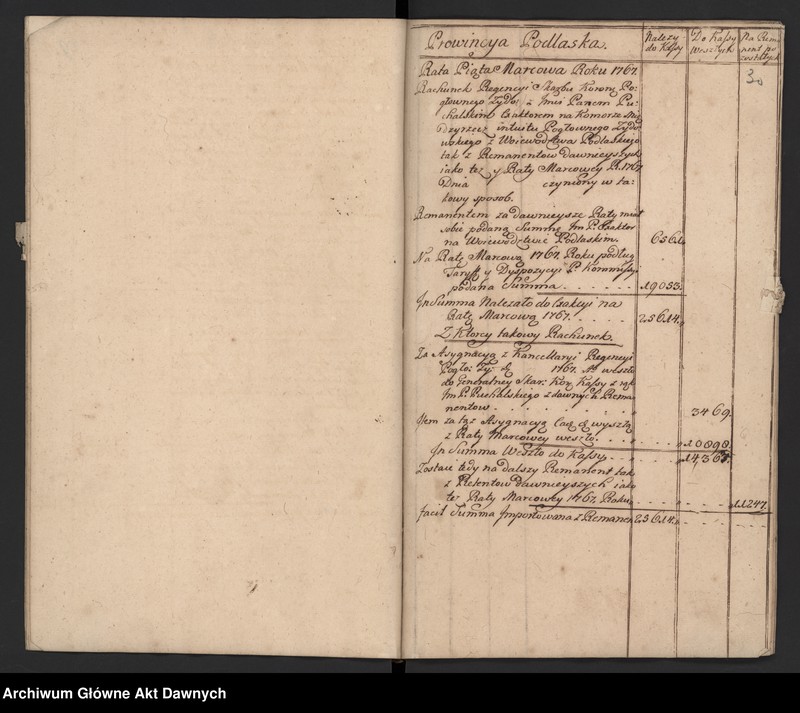 Prowincya Podlaska.
Należy do Kassy
Do Kassy weszłych
Na Remanent pozostałych
30
Rata Piąta Marcowa Roku 1767.
Rachunek Regencyi Skarbu Koron: Po-
głownego Żydo: z Imć Panem Pu-
chalskim Exaktorem na Komorze Mię-
dzyrzec intuitu Pogłownego Żydo-
wskiego z Woiewodztwa Podlaskiego
tak z Remanentow dawnieyszych
iako też y Raty Marcowey R. 1767
Dnia czyniony w ta-
kowy sposob.
Remanentem za dawnieysze Raty miał
sobie podaną Summę Im P. Exaktor
na Woiewodztwie Podlaskim. 6561.
Na Ratę Marcową 1767. Roku podług
Taryff y Dyspozycyi P. Kommissyi
podana Summa 19053.
In Summa Należało do Exakcyi na
Ratę Marcową 1767. 25614.
Z Ktorey takowy Rachunek.
Za Assygnacyą z Kancellaryi Regencyi
Pogło: Ży: 1767. weszło
do Generalney Skar: Kor: Kassy z rąk
Im P. Puchalskiego z dawnych Rema-
nentow 3469.
Item za tąż Assygnacyą wyszłą
z Raty Marcowey weszło 10898.
In Summa Weszło do Kassy 14,367.
Zostaie tedy na dalszy Remanent tak
z Retentow dawnieyszych iako
też Raty Marcowey 1767. Roku 11247.
facit Summa Importowana z Remanen 25614.
Archiwum Główne Akt Dawnych